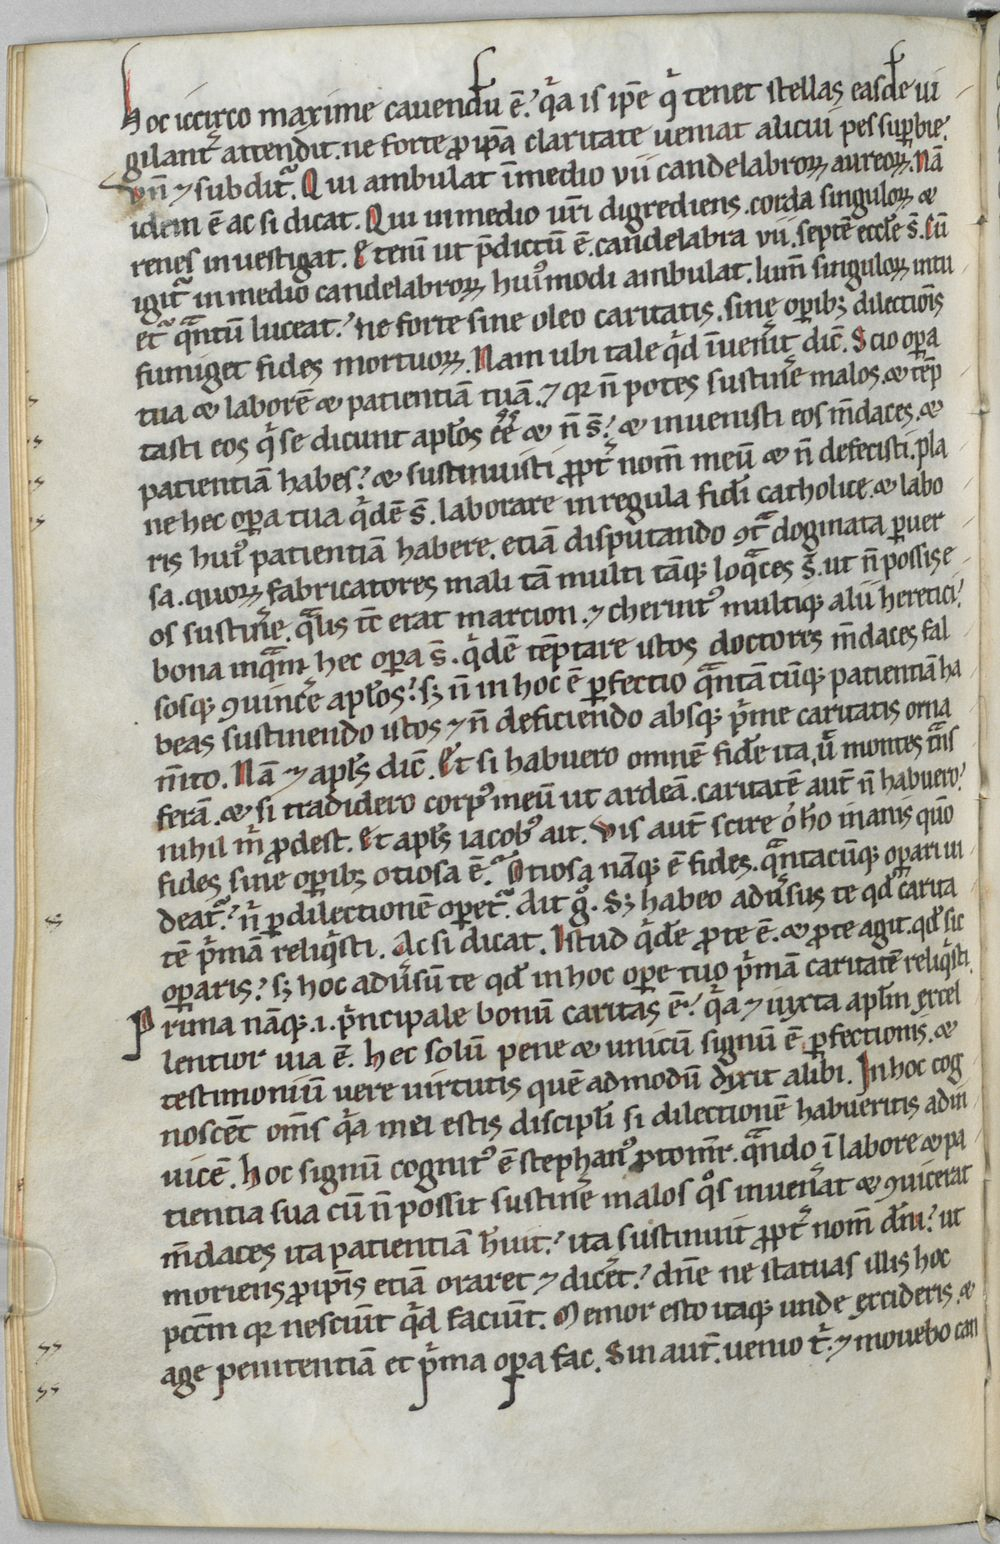 hoc iccirco maxime cavendu ē. q̓a is ip̄e q̓ tenet stellas easdē ui
gilant᷑ attendit. ne forte ꝓ ip̄a claritate ueniat alicui pes sup̱bie.
Vn̄ ⁊ subdit᷑. Qui ambulat ī medio vii candelabroꝝ aureoꝝ. Nā
idem ē ac si dicat. Qui in medio ur̄i digrediens. corda singuloꝝ ⁊
renes inuestigat. Etenī ut p̄dictū ē. candelabra vii. septē eccl̄e s̄. Cū
igit᷑ in medio candelabroꝝ hui᷒modi ambulat. lum̄ singuloꝝ intu
et᷑ qᷓntū luceat. ne forte sine oleo caritatis. sine op̱ibꝫ dilectiōis
fumiget fides mortuoꝝ. Nam ubi tale q̓d īuen̓it dic̄. Scio op̱a
tua ⁊ laborē ⁊ patientiā tuā. ⁊ qꝛ n̄ potes sustin̓e malos. ⁊ tēp
tasti eos q̓ se dicunt apl̄os ēē ⁊ n̄ s̄. ⁊ inuenisti eos m̄daces. ⁊
patientiā habes. ⁊ sustinuisti ꝓpt᷑ nom̄ meū ⁊ n̄ defecisti. pla
ne hec op̱a tua q̓dē s̄. laborare in regula fidei catholice. ⁊ labo
ris hui᷒ patientiā habere. etiā disputando ꝯtᷓ dogmata p̱uer
sa. quoꝝ fabricatores mali tā multi tāqꝫ loqᷓces s̄. ut n̄ possis e
os sustin̓e. qᷓlis tc̄ erat marcion. ⁊ cherint᷒ multiqꝫ alii heretici.
bona inqᷓm hec op̱a s̄. q̓dē tēptare istos doctores m̄daces fal
sosqꝫ ꝯuinc̓e apl̄os. sꝫ n̄ in hoc ē p̱fectio qᷓntācūqꝫ patientiā ha
beas sustinendo istos ⁊ n̄ deficiendo absqꝫ p̓me caritatis orna
m̄to. Nā ⁊ apl̄s dic̄. Et si habuero omnē fidē ita ut̄ montes tᷓns
ferā. ⁊ si tradidero corp᷒ meū ut ardeā. caritatē aut̄ n̄ habuero.
nihil m̓ ꝓdest. Et apl̄s iacob᷒ ait. Vis aut̄ scire o hō inanis quō
fides sine op̱ibꝫ otiosa ē. Otiosa nāqꝫ ē fides. qᷓntacūqꝫ op̱ari ui
deat᷑. n̓ p̱ dilectionē op̱et᷑. Ait g̊. Sꝫ habeo adu̓sus te qd̓ carita
tē p̓mā reliq̓sti. Ac si dicat. Istud q̓dē pro te ē. ⁊ pro te agit. qd̓ sic
op̱aris. sꝫ hoc adu̓sū te qd̓ in hoc op̱e tuo p̓mā caritatē reliq̓sti.
Prima nāqꝫ .i. p̓ncipale bonū caritas ē. q̓a ⁊ iuxta apl̄m excel
lentior uia ē. hec solū pene ⁊ unicū signū ē p̱fectionis. ⁊
testimoniū uere uirtutis quē admodū dixit alibi. In hoc cog
noscēt om̄s q̓a mei estis discipl̄i si dilectionē habueritis adin
uicē. hoc signū cognit᷒ ē stephan᷒ ꝓtom̄r. qᷓndo ī labore ⁊ pa
tientia sua cū n̄ possit sustin̓e malos q̊s inuen̓at ⁊ ꝯuicerat
m̄daces ita patientiā h̄uit. ita sustinuit ꝓpt᷑ nom̄ dn̄i. ut
moriens ꝓ ip̄is etiā oraret ⁊ dic̓et. dn̄e ne statuas illis hoc
pcc̄m qꝛ nesciūt q̓d faciūt. Memor esto itaqꝫ unde excideris. ⁊
age penitentiā et p̓ma op̱a fac. Sin aut̄. uenio t̓. ⁊ mouebo can